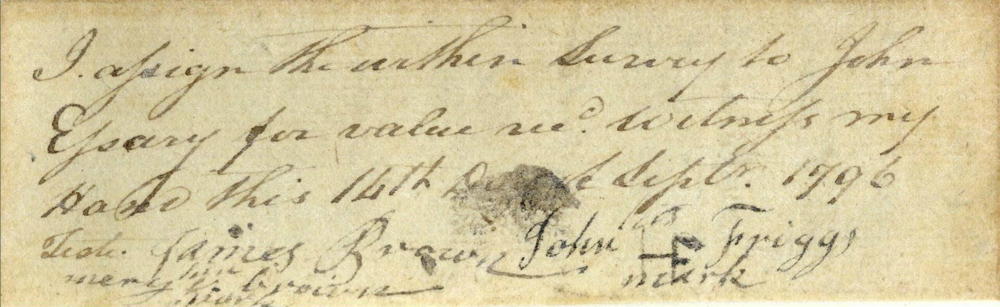 I. assign the within Survey to John
Essary for value recd. Witness my
Hand this 14th Day of Septr. 1796
Teste. James Brown John Friggs
mery brown mark
mark